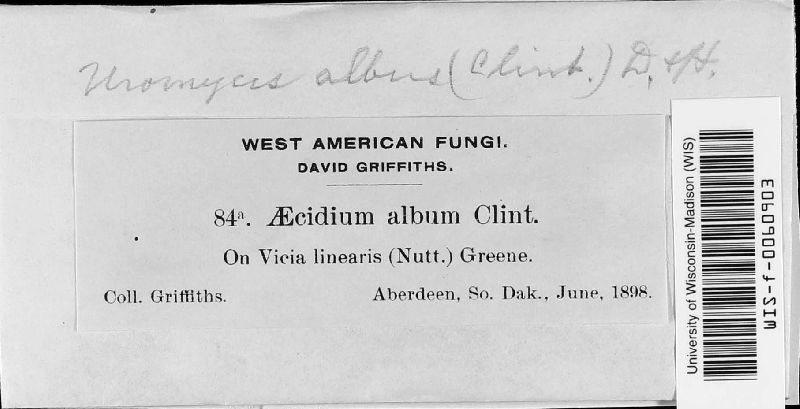 Uromyces albus (Clint.) D. & H.
WEST AMERICAN FUNGI.
DAVID GRIFFITHS.
84ª. Æcidium album Clint.
On Vicia linearis (Nutt.) Greene.
Coll. Griffiths. Aberdeen, So. Dak., June, 1898.
University of Wisconsin-Madison (WIS)
WIS-f-0060903